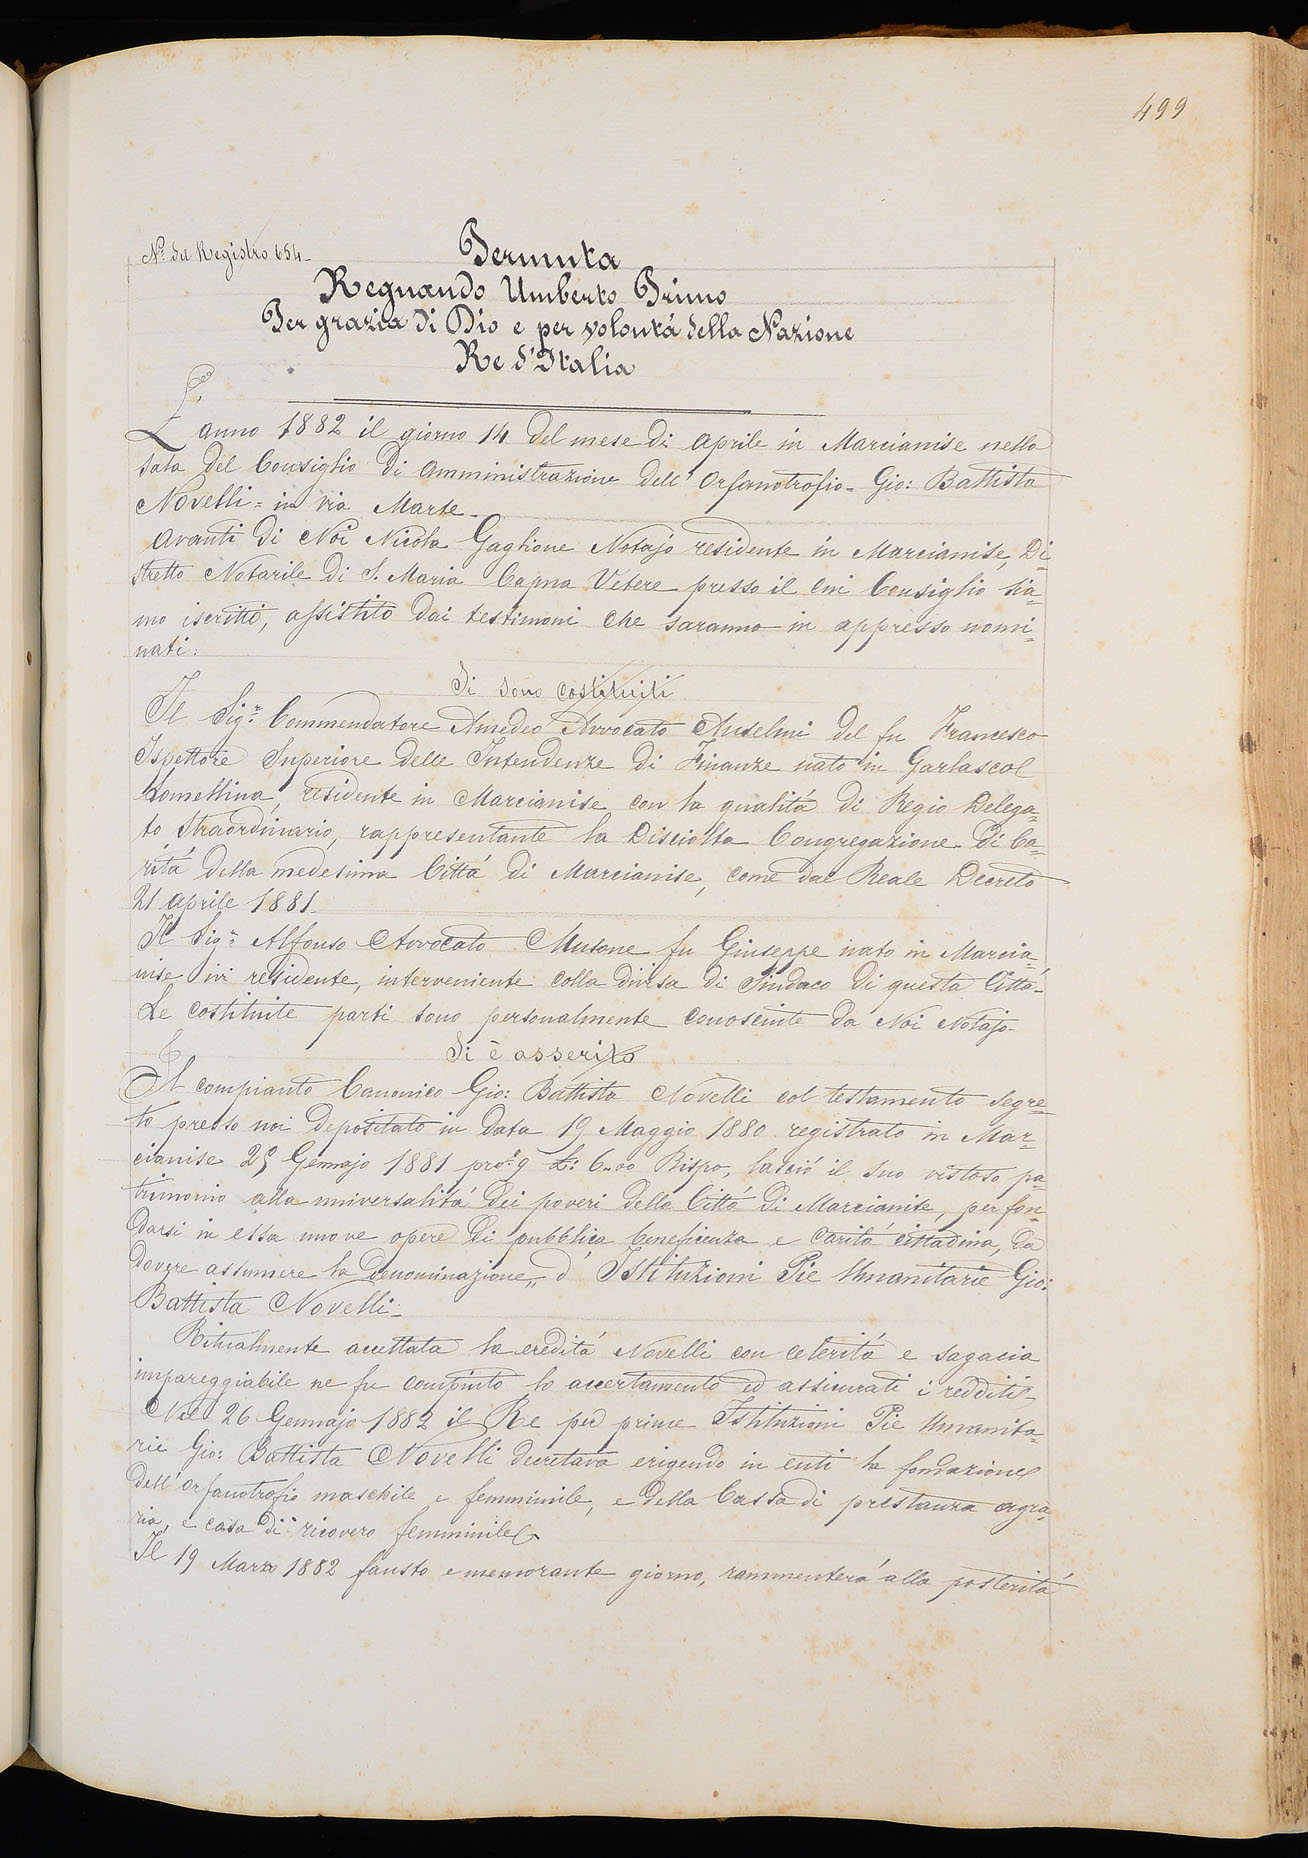 499
N.° del Registro 654-
Permuta
Regnando Umberto Primo
Per grazia di Dio e per volontá della Nazione
Re d'Italia
L'anno 1882 il giorno 14 del mese di aprile in Marcianise nella
sala del Consiglio di amministrazione dell'Orfanotrofio- Gio: Battista
Novelli = in via Marte-
Avanti di Noi Nicola Gaglione Notajo residente in Marcianise, Di=
stretto Notarile di S. Maria Capua Vetere presso il cui Consiglio sia=
mo iscritti, assistito dai testimoni che saranno in appresso nomi=
nati:
Si sono costituiti
Il Sig.r Commendatore Amedeo Avvocato Anselmi del fu Francesco
Ispettore Superiore delle Intendenze di Finanze nato in Garlascol
Lomellina, residente in Marcianise con la qualitá di Regio Delega=
to Straordinario, rappresentante la Disciolta Congregazione di Ca=
ritá della medesima Cittá di Marcianise, come dal Reale Decreto
21 aprile 1881-
Il Sig.r Alfonso Avvocato Musone fu Giuseppe nato in Marcia=
nise ivi residente, interveniente colla divisa di Sindaco di questa Cittá-
Le costituite parti sono personalmente conosciute da Noi Notajo-
Si è asserito
Il compianto Canonico Gio: Battista Novelli col testamento segre=
to presso noi depositato in data 19 Maggio 1880 registrato in Mar=
cianise Gennajo 1881 L: 6..00 Rispo, lasció il suo vistoso pa=
trimonio alla universalitá dei poveri della Cittá di Marcianise, per fon=
darsi in essa nuove opere di pubblica beneficenza e caritá cittadina, da
dovere assumere la denominazione,, d'Istituzioni Pie Umanitarie Gio:
Battista Novelli-
Ritualmente accettata la ereditá Novelli con celeritá e sagacia
impareggiabile ne fu compiuto lo accertamento ed assicurati i redditi-
Nel 26 Gennajo 1882 il Re per prime Istituzioni Pie Umanita=
rie Gio: Battista Novelli decretava erigendo in enti la fondazione
dell'orfanotrofio maschile e femminile, e della Cassa di prestanza agra=
ria, e casa di ricovero femminile
Il 19 Marzo 1882 fausto e memorante giorno, rammenterá alla posteritá